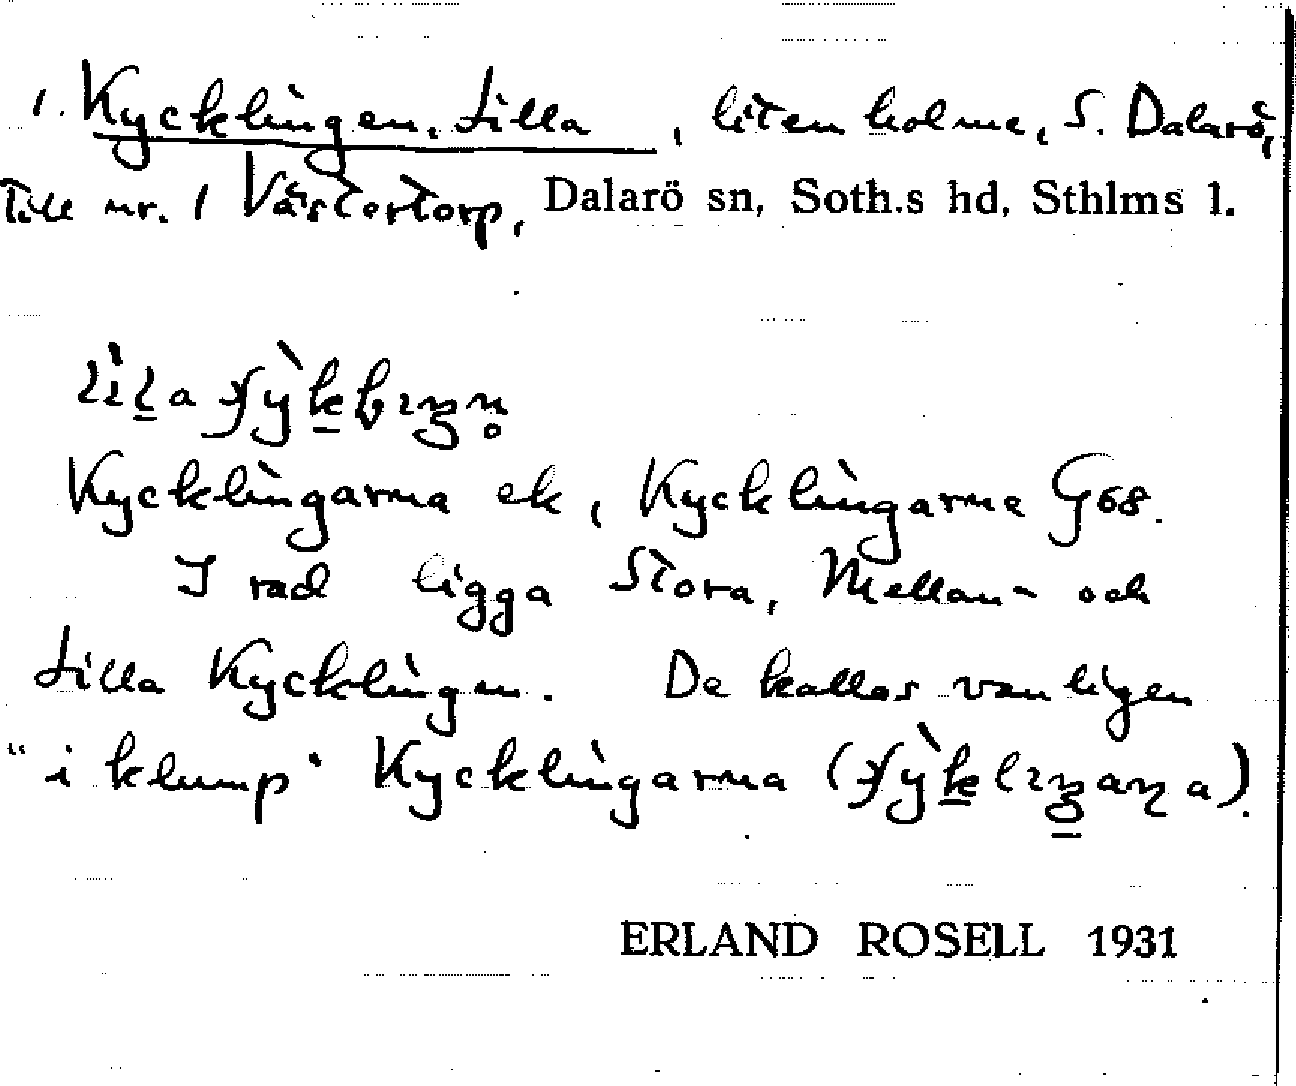 1. Kycklingen, Lilla, liten holme, S. Dalarö,
Till nr. 1 Västertorp, Dalarö sn, Soth.s hd, Sthlms l.
Kycklingarna ek, Kycklingarne G68.
I rad ligga Stora, Mellan- och
Lilla Kycklingen. De kallas vanligen
"i klump" Kycklingarna
ERLAND ROSELL 1931